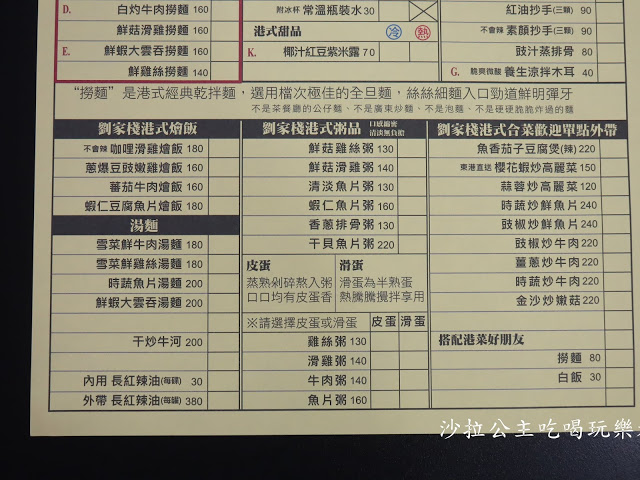 D. 白灼牛肉撈麵 160
鮮菇滑雞撈麵 160
E. 鮮蝦大雲吞撈麵 160
鮮雞絲撈麵 140
附冰杯 常溫瓶裝水 30
港式甜品 冷 熱
K. 椰汁紅豆紫米露 70
紅油抄手(三顆) 90
不會辣 素顏抄手(三顆) 90
豉汁蒸排骨 80
G. 脆爽微酸 養生涼拌木耳 40
“撈麵”是港式經典乾拌麵，選用檔次極佳的全旦麵，絲絲細麵入口勁道鮮明彈牙
不是茶餐廳的公仔麵、不是廣東炒麵、不是泡麵、不是硬硬脆脆炸過的麵
劉家棧港式燴飯
不會辣 咖哩滑雞燴飯 180
蔥爆豆豉嫩雞燴飯 160
蕃茄牛肉燴飯 160
蝦仁豆腐魚片燴飯 180
湯麵
雪菜鮮牛肉湯麵 180
雪菜鮮雞絲湯麵 180
時蔬魚片湯麵 200
鮮蝦大雲吞湯麵 200
干炒牛河 200
內用 長紅辣油(每碟) 30
外帶 長紅辣油(每罐) 380
劉家棧港式粥品 口感綿密 清淡無負擔
鮮菇雞絲粥 130
鮮菇滑雞粥 140
清淡魚片粥 130
蝦仁魚片粥 160
香蔥排骨粥 130
干貝魚片粥 220
皮蛋
蒸熟剁碎熬入粥
口口均有皮蛋香
滑蛋
滑蛋為半熟蛋
熱騰騰攪拌享用
※請選擇皮蛋或滑蛋 皮蛋 滑蛋
雞絲粥 130
滑雞粥 140
牛肉粥 140
魚片粥 160
劉家棧港式合菜歡迎單點外帶
魚香茄子豆腐煲(辣) 220
東港直送 櫻花蝦炒高麗菜 150
蒜蓉炒高麗菜 120
時蔬炒鮮魚片 240
豉椒炒鮮魚片 240
豉椒炒牛肉 220
薑蔥炒牛肉 220
時蔬炒牛肉 220
金沙炒嫩菇 220
搭配港菜好朋友
撈麵 80
白飯 30
沙拉公主吃喝玩樂